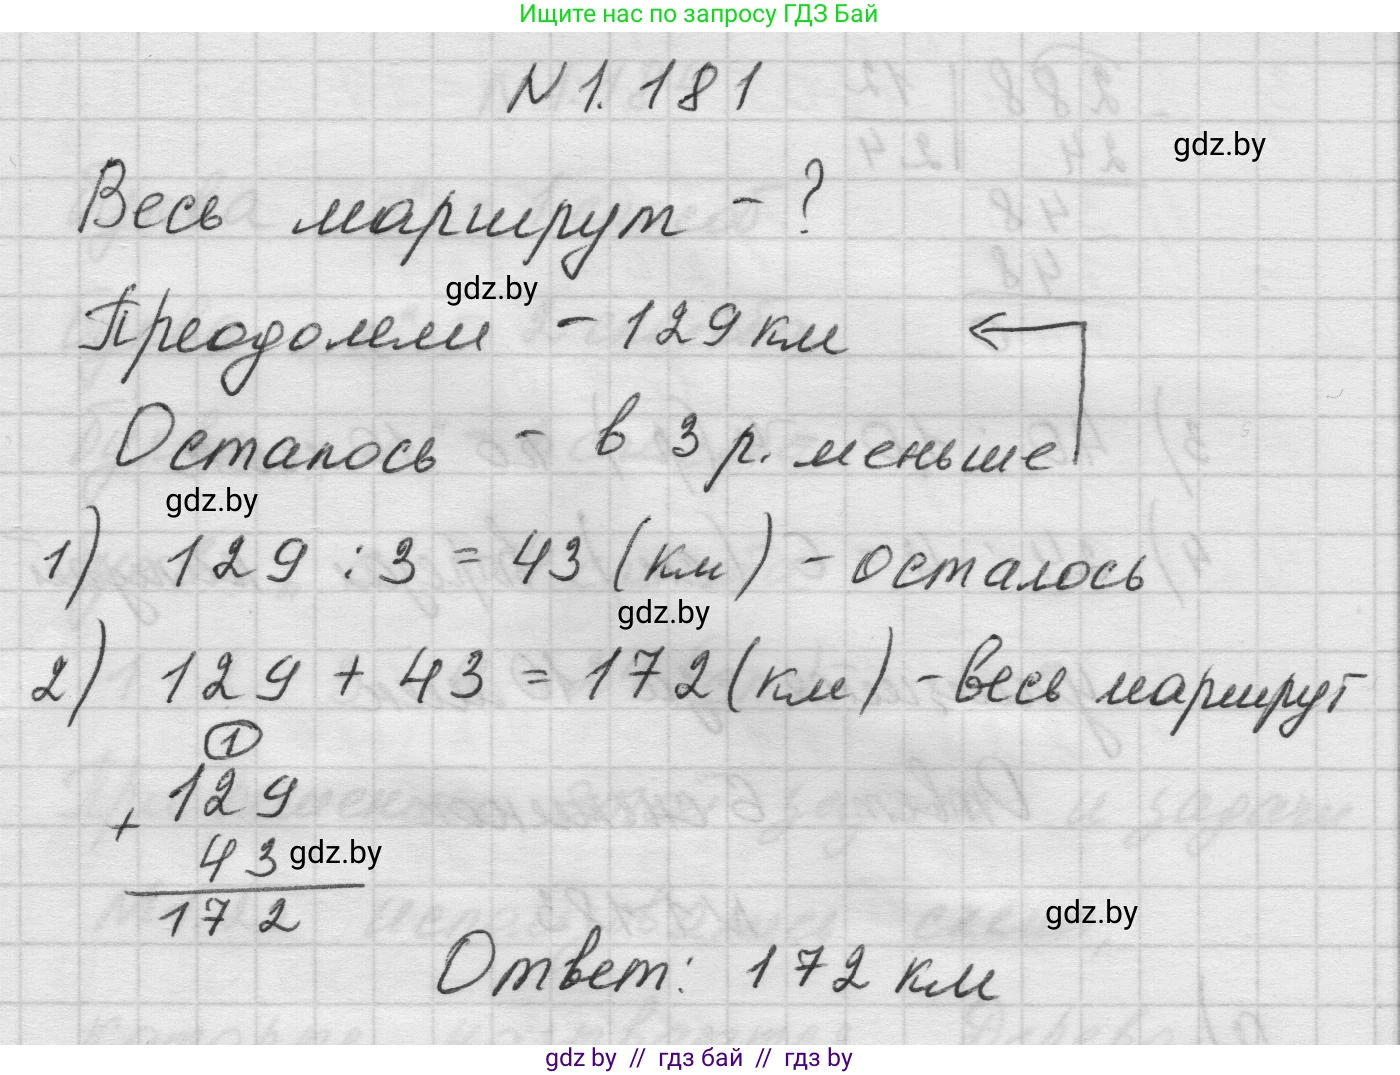 Ищите нас по запросу ГДЗ Бай
N 1. 181
gdz.by
Весь маршрут - ?
gdz.by
Преодолели - 129 км
Осталось - в 3 р. меньше
gdz.by
1) 129 : 3 = 43 (км) - осталось
gdz.by
2) 129 + 43 = 172 (км) - весь маршрут
1
129
+
43
gdz.by
172
gdz.by
Ответ: 172 км
gdz by // гдз бай // гдз by